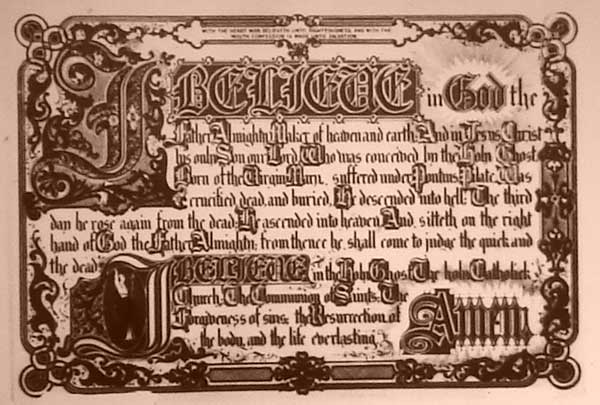 WITH THE HEART MAN BELIEVETH UNTO RIGHTEOUSNESS, AND WITH THE
MOUTH CONFESSION IS MADE UNTO SALVATION.
I BELIEVE in God the
Father Almighty Maker of heaven and earth, And in Jesus Christ
his only Son our Lord, Who was conceived by the Holy Ghost,
Born of the Virgin Mary, suffered under Pontius Pilate, Was
crucified, dead, and buried, He descended into hell; The third
day he rose again from the dead, He ascended into heaven, And sitteth on the right
hand of God the Father Almighty; from thence he shall come to judge the quick and
the dead.
I BELIEVE in the Holy Ghost; The holy Catholick
Church; The Communion of Saints; The
Forgiveness of sins; the Resurrection of
the body, and the life everlasting.
Amen.